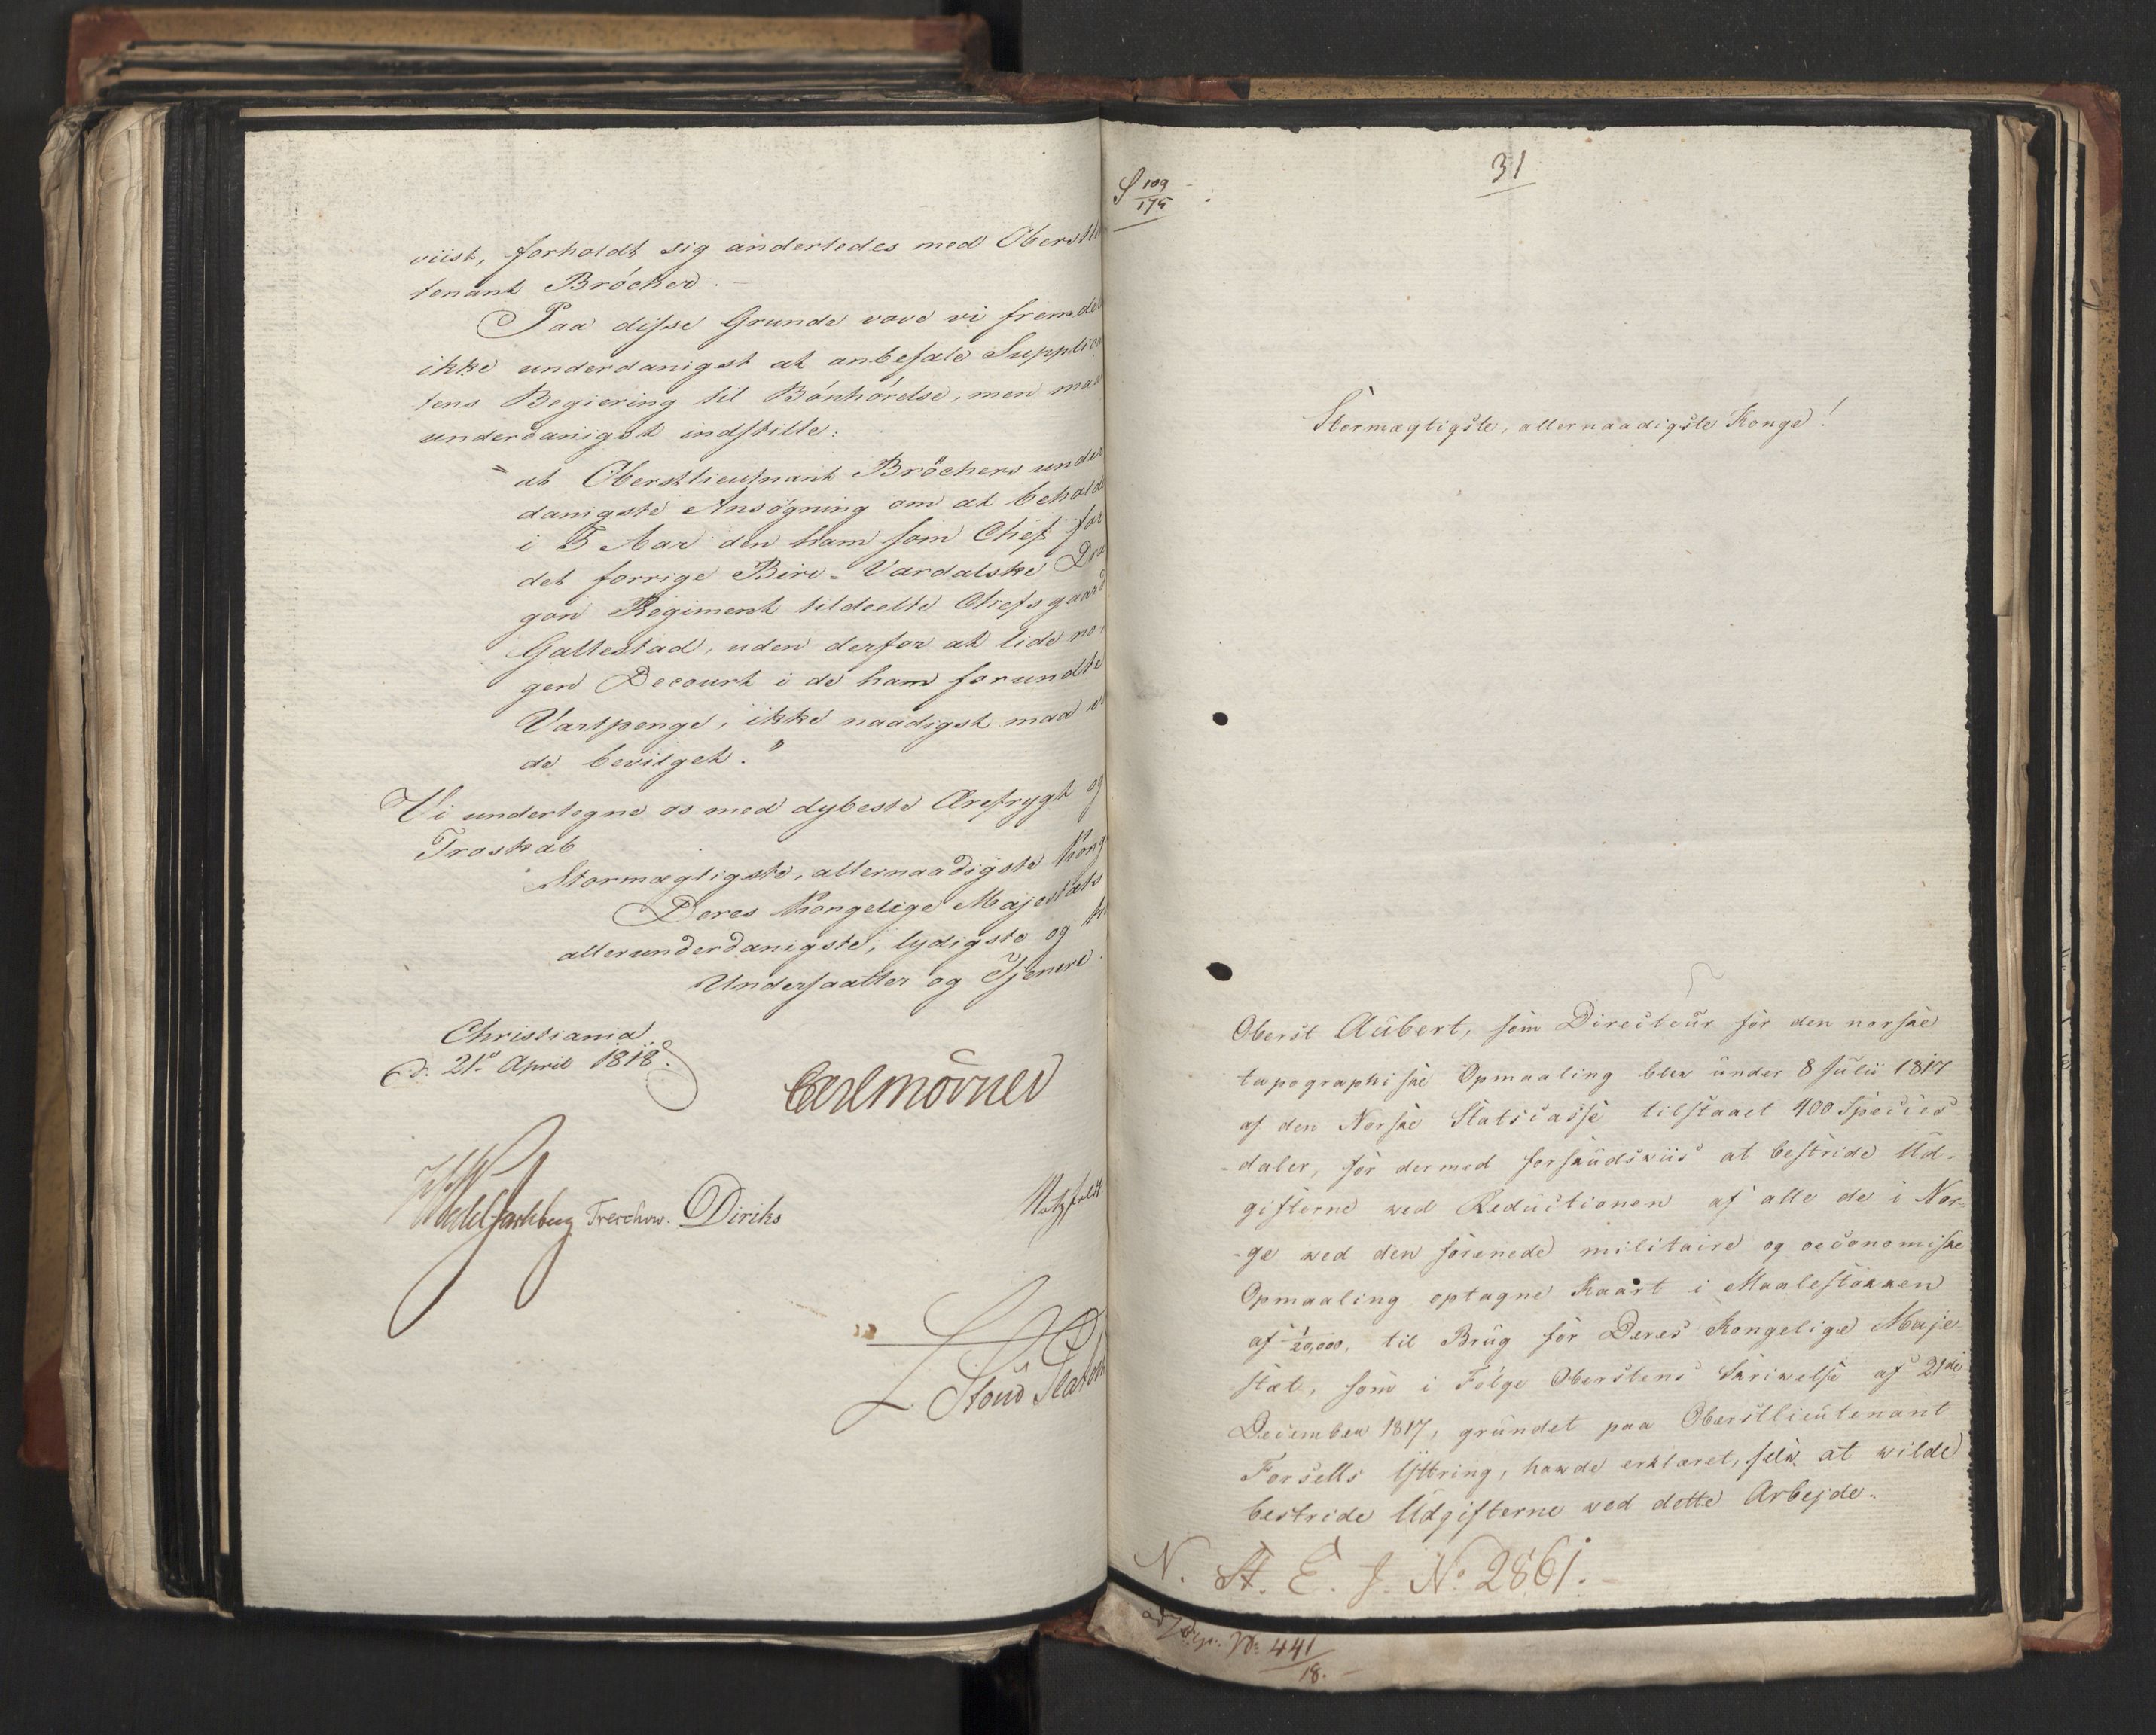 viist, forholdt sig anderledes med Oberstli
tenant Bröcker.
Paa disse Grunde vove vi fremde
ikke underdanigst at anbefale Supplic
tens Begiering til Bönhörelse, men maa
underdanigst indstille:
" at Oberstlieutnant Bröchers under
danigste Ansögning om at behold
i 5 Aar den ham som Chef for
det forrige Biri-Vardalske Dra
gon Regiment tildeelte Chefsgaard
Gallestad, uden derfor at lide no
gen Decourt i de ham forundte
Vartpenge, ikke naadigst maa v
de bevilget."
Vi undertegne os med dybeste Ærefrygt og
Troskab
Stormægtigste, allernaadigste Kong
Deres Kongelige Majestæts
allerunderdanigste, lydigste og
Undersaatter og Tjenere.
Christiania
d. 21de April 1818.
Carl Mörner
Wedel Jarlsberg Treschow. Diriks Motzfeldt.
L. Stoud Platou
S 109/175
31
Stormægtigste, allernaadigste Konge!
Oberst Aubert, som Directeur for den norske
topographiske Opmaaling blev under 8 Julii 1817
af den Norske Statscasse tilstaaet 400 Species
daler, for dermed forskudsviis at bestride Ud-
gifterne ved Reductionen af alle de i Nor-
-ge ved den forenede militaire og oeconomiske
Opmaaling optagne Kaart i Maalestokken
af 1/20,000, til Brug for Deres Kongelige Maje-
stæt, som i Fölge Oberstens Skrivelse af 21de
December 1817, grundet paa Oberstlieutenant
Forsells Yttring, havde erklæret, selv at wilde
bestride Udgifterne ved dette Arbejde.
N. St. E. J. No 2861.
No. 441/18.